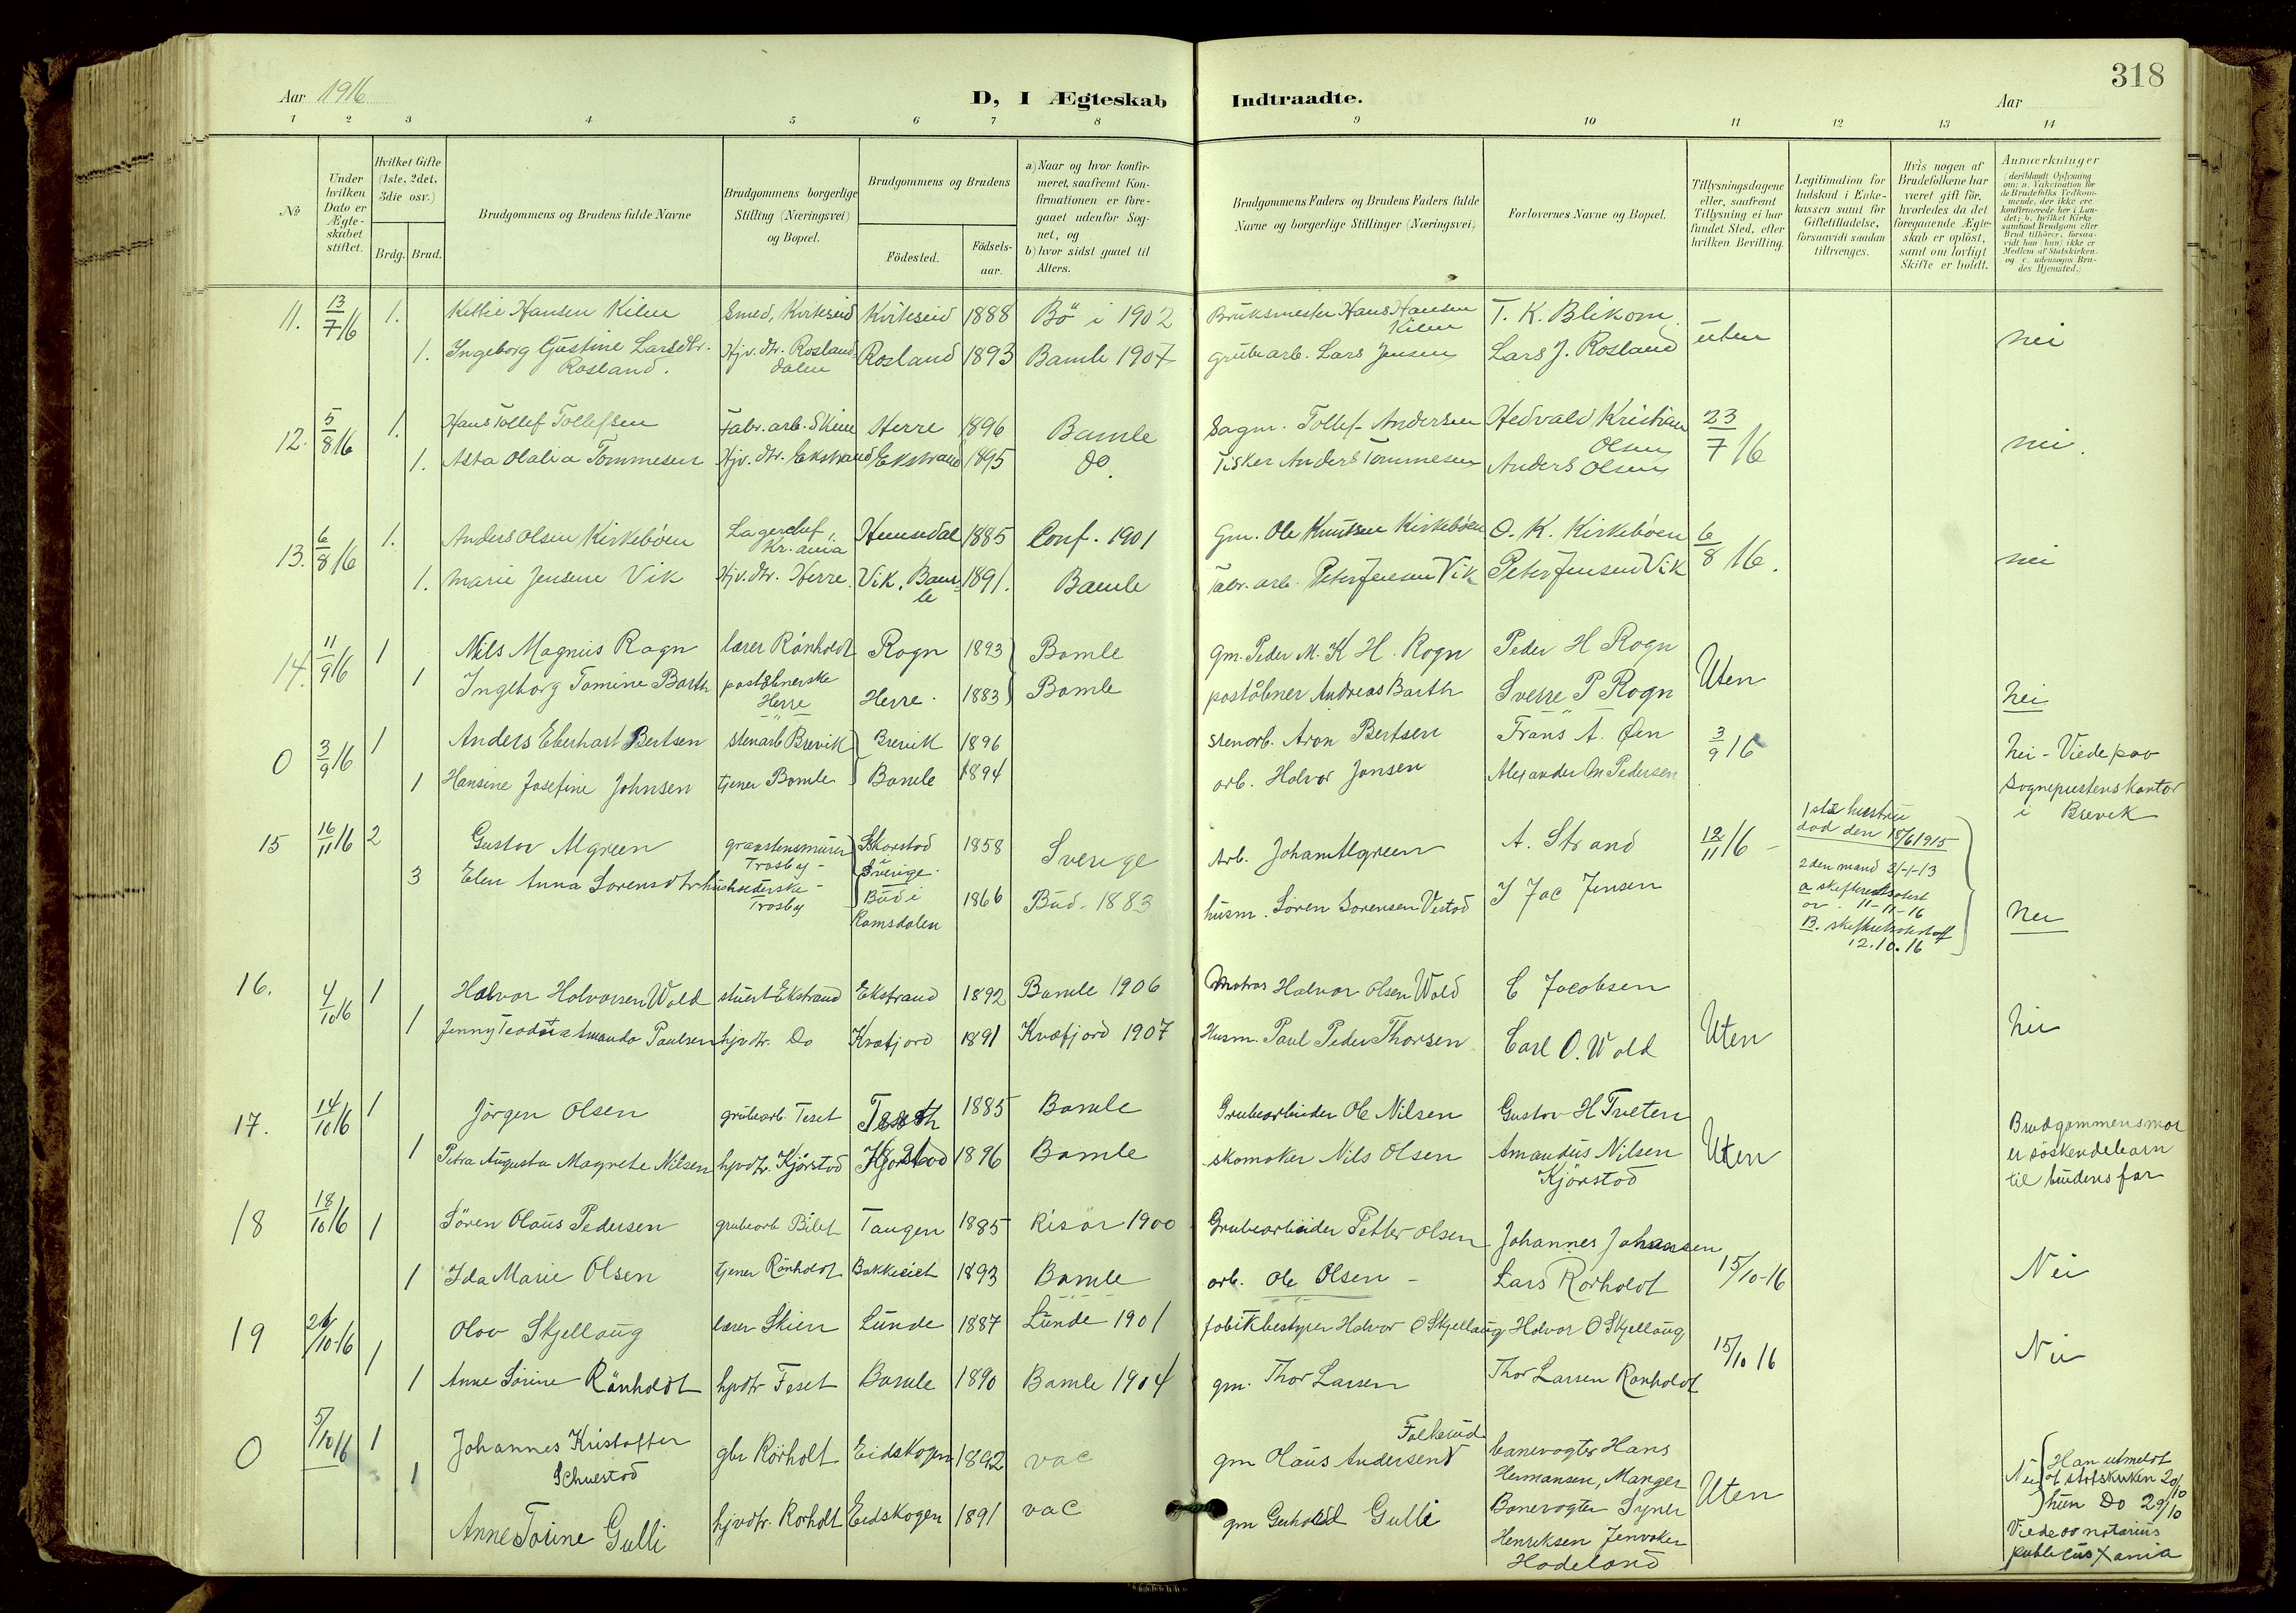 Aar 1916
D, I Ægteskab Indtraadte.
Aar
318
1 2 3 4 5 6 7 8 9 10 11 12 13 14
No
Under hvilken Dato er Ægteskabet stiftet.
Hvilket Gifte (1ste, 2det, 3die osv.)
Brdg. Brud.
Brudgommens og Brudens fulde Navne
Brudgommens borgerlige Stilling (Næringsvei) og Bopæl.
Brudgommens og Brudens
Födested.
Födsels-aar.
a) Naar og hvor konfirmeret, saafremt Konfirmationen er foregaaet udenfor Sognet, og
b) hvor sidst gaaet til Alters.
Brudgommens Faders og Brudens Faders fulde Navne og borgerlige Stillinger (Næringsvei)
Forlovernes Navne og Bopæl.
Tillysningsdagene eller, saafremt Tillysning ei har fundet Sted, efter hvilken Bevilling.
Legitimation for Indskud i Enkekassen samt for Giftetilladelse, forsaavidt saadan tiltrænges.
Hvis nogen af Brudefolkene har været gift för, hvorledes da det foregaaende Ægteskab er oplöst, samt om lovligt Skifte er holdt.
Anmærkninger (deriblandt Oplysning om: a. Vakcination for de Brudefolks Vedkommende, der ikke ere konfirmerede her i Landet; b. hvilket Kirkesamfund Brudgom eller Brud tilhörer, forsaavidt han (hun) ikke er Medlem af Statskirken, og c. udensogns Brudes Hjemsted.)
11. 13/7 16 1. Kittil Hansen Kilen Smed, Kviteseid Kviteseid 1888 Bö i 1902 Bruksmester Hans Hansen Kilen T. K. Blikom uten nei
1. Ingeborg Gustine Larsdtr. Rosland. Hjv. dtr. Roslanddalen Rosland 1893 Bamle 1907 grubearb. Lars Jensen Lars J. Rosland
12. 5/8 16 1. Hans Tollef Tollefsen Fabr. arb. Skien Herre 1896 Bamle Sagm. Tollef Andersen Hedvald Kristian Olsen 23/7 16 nei.
1. Asta Olalia Tommesen Hjv. dtr. Ekstrand Ekstrand 1895 do. Fisker Anders Tommesen Anders Olsen
13. 6/8 16 1. Anders Olsen Kirkeböen Lagerchef, Kr.ania Hemsedal 1885 Conf. 1901 Gm. Ole Knutsen Kirkeböen O. K. Kirkeböen 6/8 16. nei
1. Marie Jensine Vik Hjv. dtr. Herre. Vik, Bamle 1891. Bamle Fabr. arb. Peter Jensen Vik Peter Jensen Vik
14. 11/9 16 1 Nils Magnus Rogn lærer Rönholdt Rogn 1893 Bamle gm. Peder M. K H. Rogn Peder H Rogn Uten nei
1 Ingeborg Tomine Barth poståbnerske Herre Herre. 1883 Bamle poståbner Andreas Barth Sverre P Rogn
0 3/9 16 1 Anders Eberhart Bertsen stenarb Brevik Brevik 1896 stenarb. Aron Bertsen Frans A. Øen 3/9 16 nei - Viede paa Sogneprestens kontor i Brevik
1 Hansine Josefine Johnsen tjener Bamle Bamle 1894 arb. Halvor Jansen Alexander M Pedersen
15 16/11 16 2 Gustav Algreen graastensmurer Trosby - Skorstad Sverige. 1858 Sverige Arb. Johan Algreen A. Strand 12/11 16 - 1ste hustru död den 18/6 1915
3 Elen Anna Sorensdtr husholderske - Trosby Bud i Ramsdalen 1866 Bud. 1883 husm. Sören Sorensen Vestad I Jac Jensen 2den mand 2/-1-13 a skifteattest av 11-11-16 B. skifteattest af 12.10.16 nei
16. 4/10 16 1 Halvor Halvorsen Wold stuert Ekstrand Ekstrand 1892 Bamle 1906 Matros Halvor Olsen Wold C Jacobsen Uten nei
1 Jenny Teodora Amanda Paulsen hjvdtr. Do Kvæfjord 1891 Kvæfjord 1907 Husm. Paul Peder Thorsen Carl O. Wold
17. 14/10 16 1 Jörgen Olsen grubearb. Feset 1885 Bamle Grubearbeider Ole Nilsen Gustav H Tveten Uten Brudgommens mor er söskendebarn til brudens far
1 Petra Augusta Magrete Nilsen hjvdtr. Kjörstad Kjörstad 1896 Bamle skomaker Nils Olsen Amandus Nilsen Kjörstad
18 18/10 16 1 Sören Olaus Pedersen grubearb Bilet Tangen 1885 Risör 1900 Grubearbeider Petter Olsen Johannes Johansen 15/10-16 Nei
1 Ida Marie Olsen tjener Rönholdt 1893 Bamle arb. Ole Olsen - Lars Rorholdt
19 26/10-16 1 Olav Skjellaug lærer Skien Lunde 1887 Lunde 1901 fabrikbestyrer Halvor O Skjellaug Halvor O Skjellaug 15/10 16 Nei
1 Anne Sörine Rönholdt hjvdtr Feset Bamle 1890 Bamle 1904 gm. Thor Larsen Thor Larsen Ronholdt
0 5/10 16 1 Johannes Kristoffer gbr Rörholt Eidskogen 1892 vac gm Olaus Andersen Falkerud banevogter Hans Hermansen, Manger Uten Nei Han utmeldt af statskirken 20/10 hun Do 29/10 Viede av notarius publicus Xania
1 Anne Torine Gulli hjvdtr. Rorholt Eidskogen 1891 vac gm Gulli Banevogter Syner Henriksen Jenvaker Hadeland